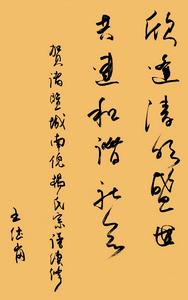 欣逢清明盛世
共建和谐社会
贺诸暨城南倪杨氏宗谱
王